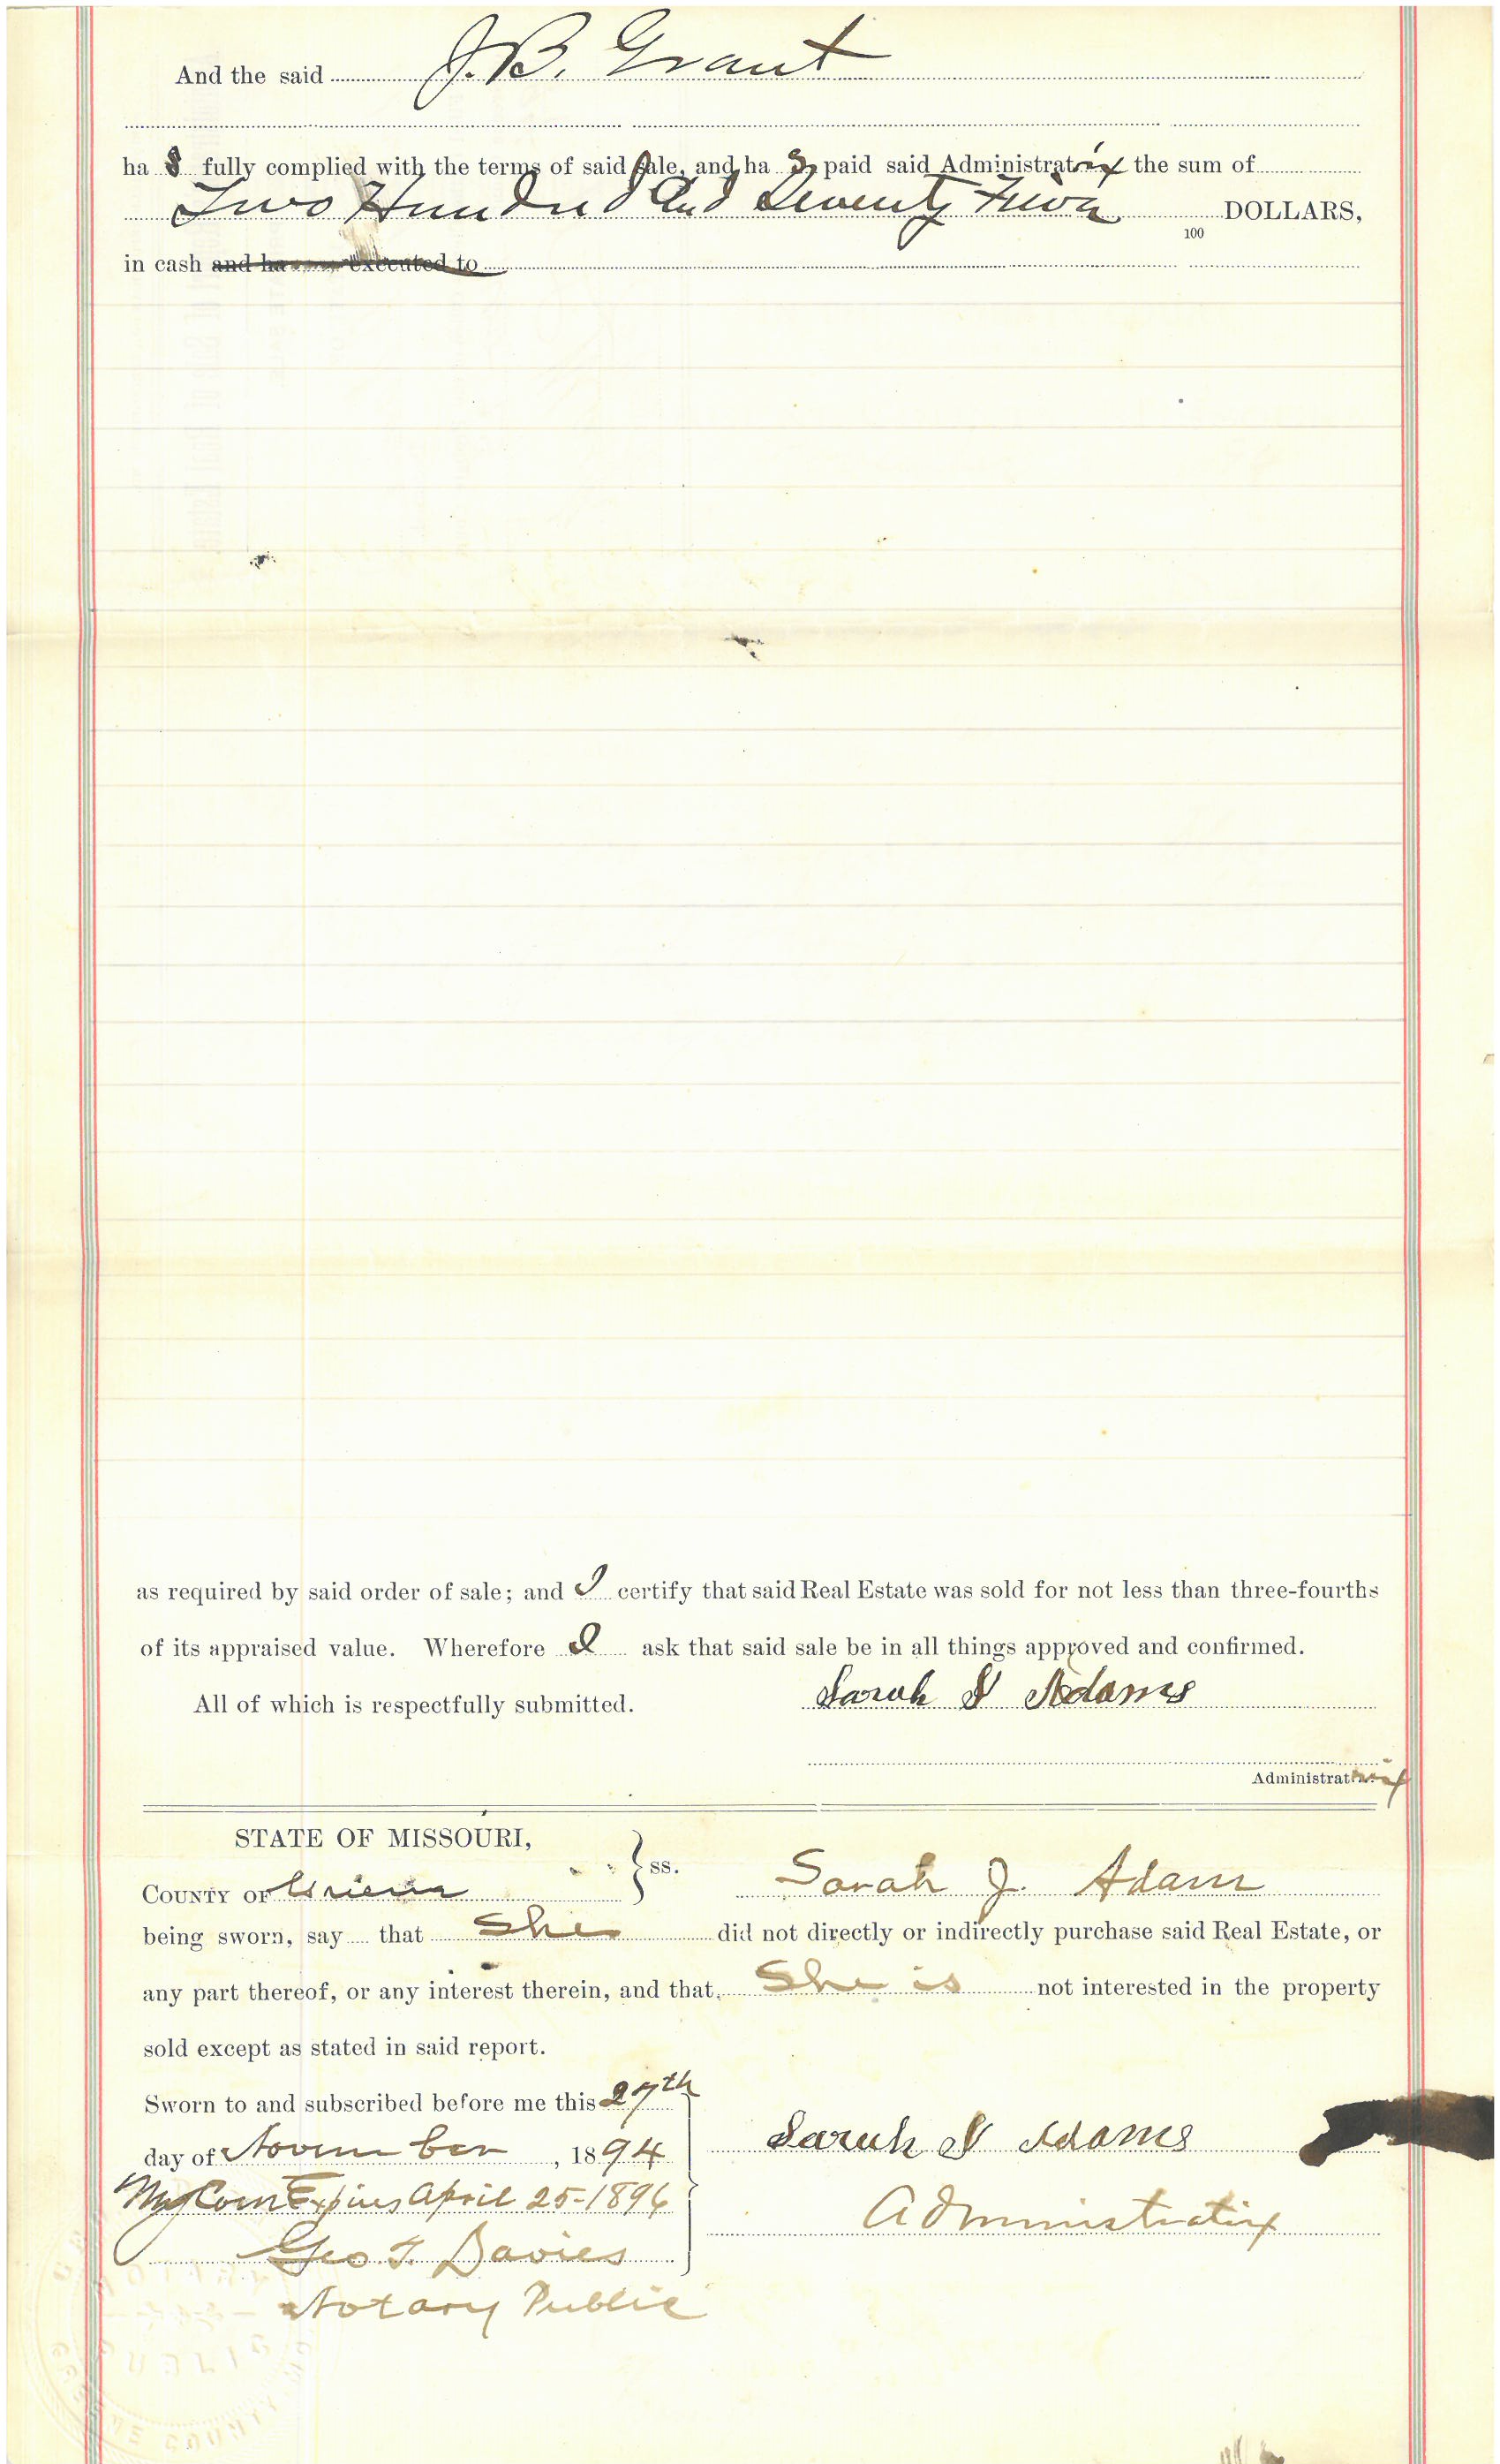 And the said J. B. Grant
ha s fully complied with the terms of said Sale, and ha s paid said Administratrix the sum of
Two Hundred and Seventy Five DOLLARS,
100
in cash and ha executed to
as required by said order of sale; and I certify that said Real Estate was sold for not less than three-fourths
of its appraised value. Wherefore I ask that said sale be in all things approved and confirmed.
All of which is respectfully submitted. Sarah J Adams
Administratrix
STATE OF MISSOURI,
COUNTY OF Greene ss. Sarah J. Adam
being sworn, say that She did not directly or indirectly purchase said Real Estate, or
any part thereof, or any interest therein, and that She is not interested in the property
sold except as stated in said report.
Sworn to and subscribed before me this 27th
day of November, 1894 Sarah J Adams
My Com Expires April 25-1896 Administratrix
Geo T. Davies
Notary Public